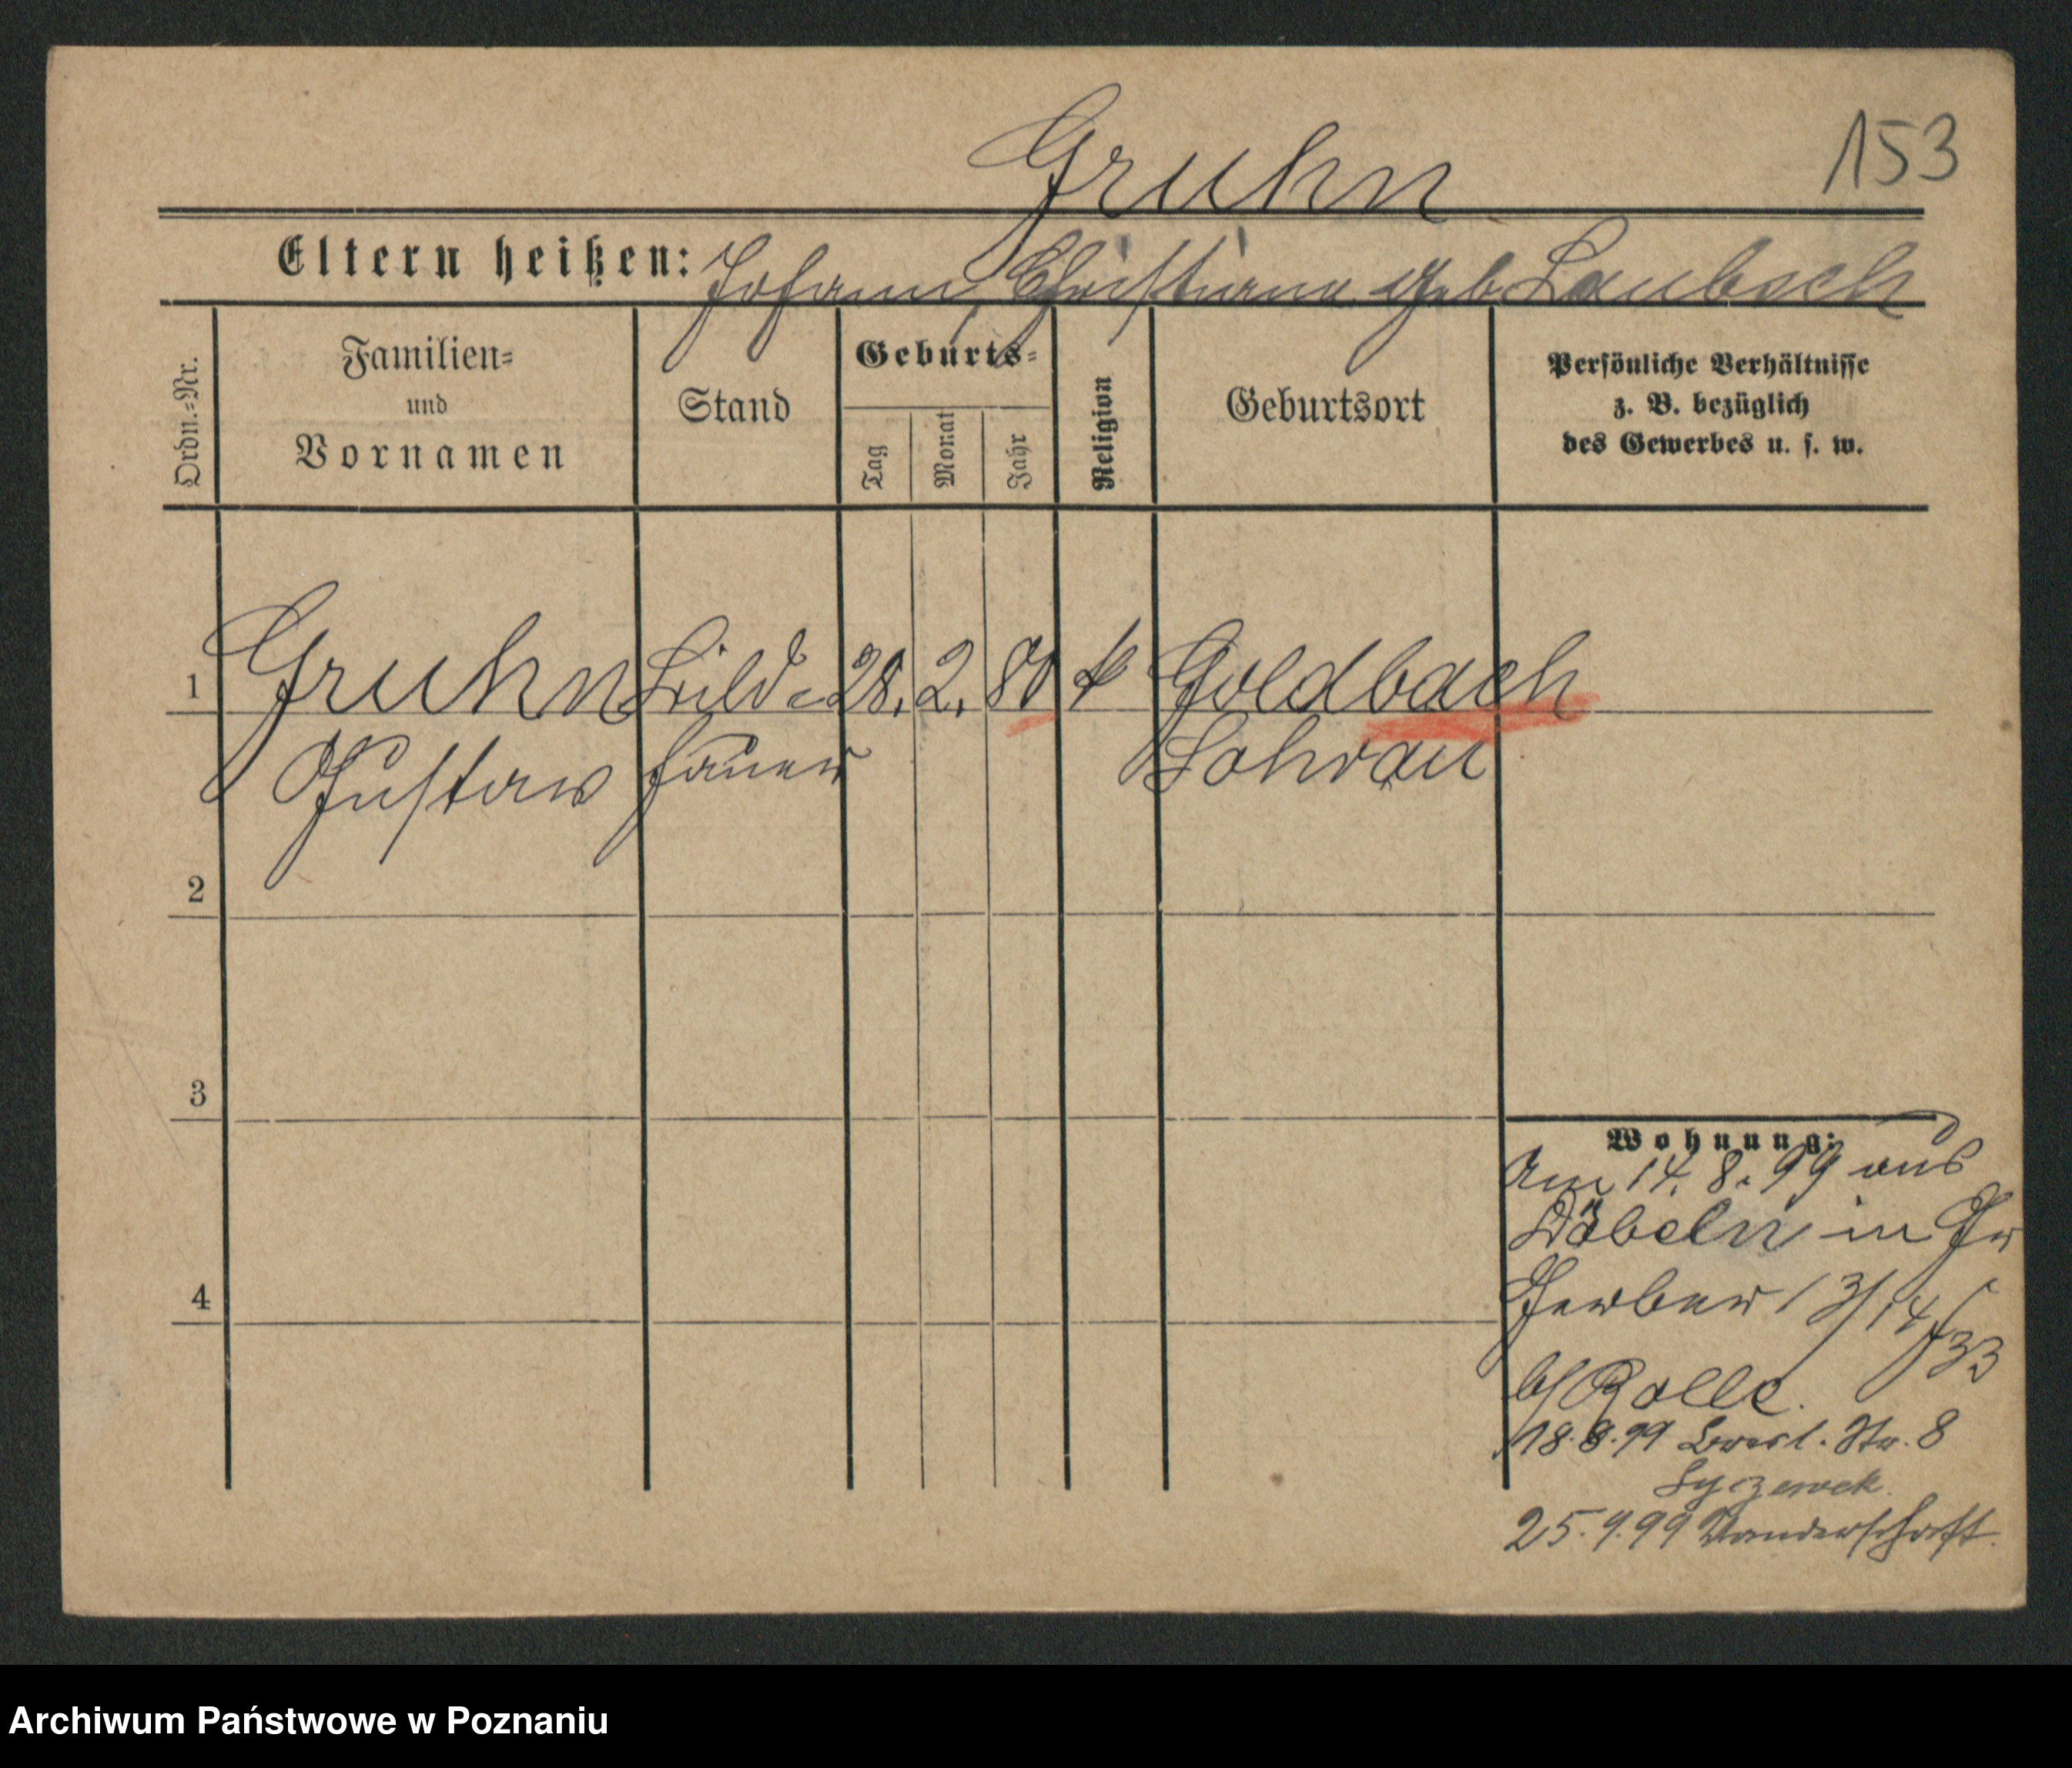 Gruhn
153
Eltern heißen: Johann, Christiane geb Laubsch
Ordn.=Nr.
Familien=
und
Vornamen
Stand
Geburts=
Tag
Monat
Jahr
Religion
Geburtsort
Persönliche Verhältnisse
z. B. bezüglich
des Gewerbes u. s. w.
1
Gruhn Bild= 28. 2. 80 k Goldbach
Gustav hauer
2
3
4
Wohnung:
Am 14. 8. 99 aus
Döbeln in Gr
Gerber 13/14
33
b/ Rolle.
18.8.99 Bresl. Str. 8
25.9.99 Wanderschaft.
Archiwum Państwowe w Poznaniu